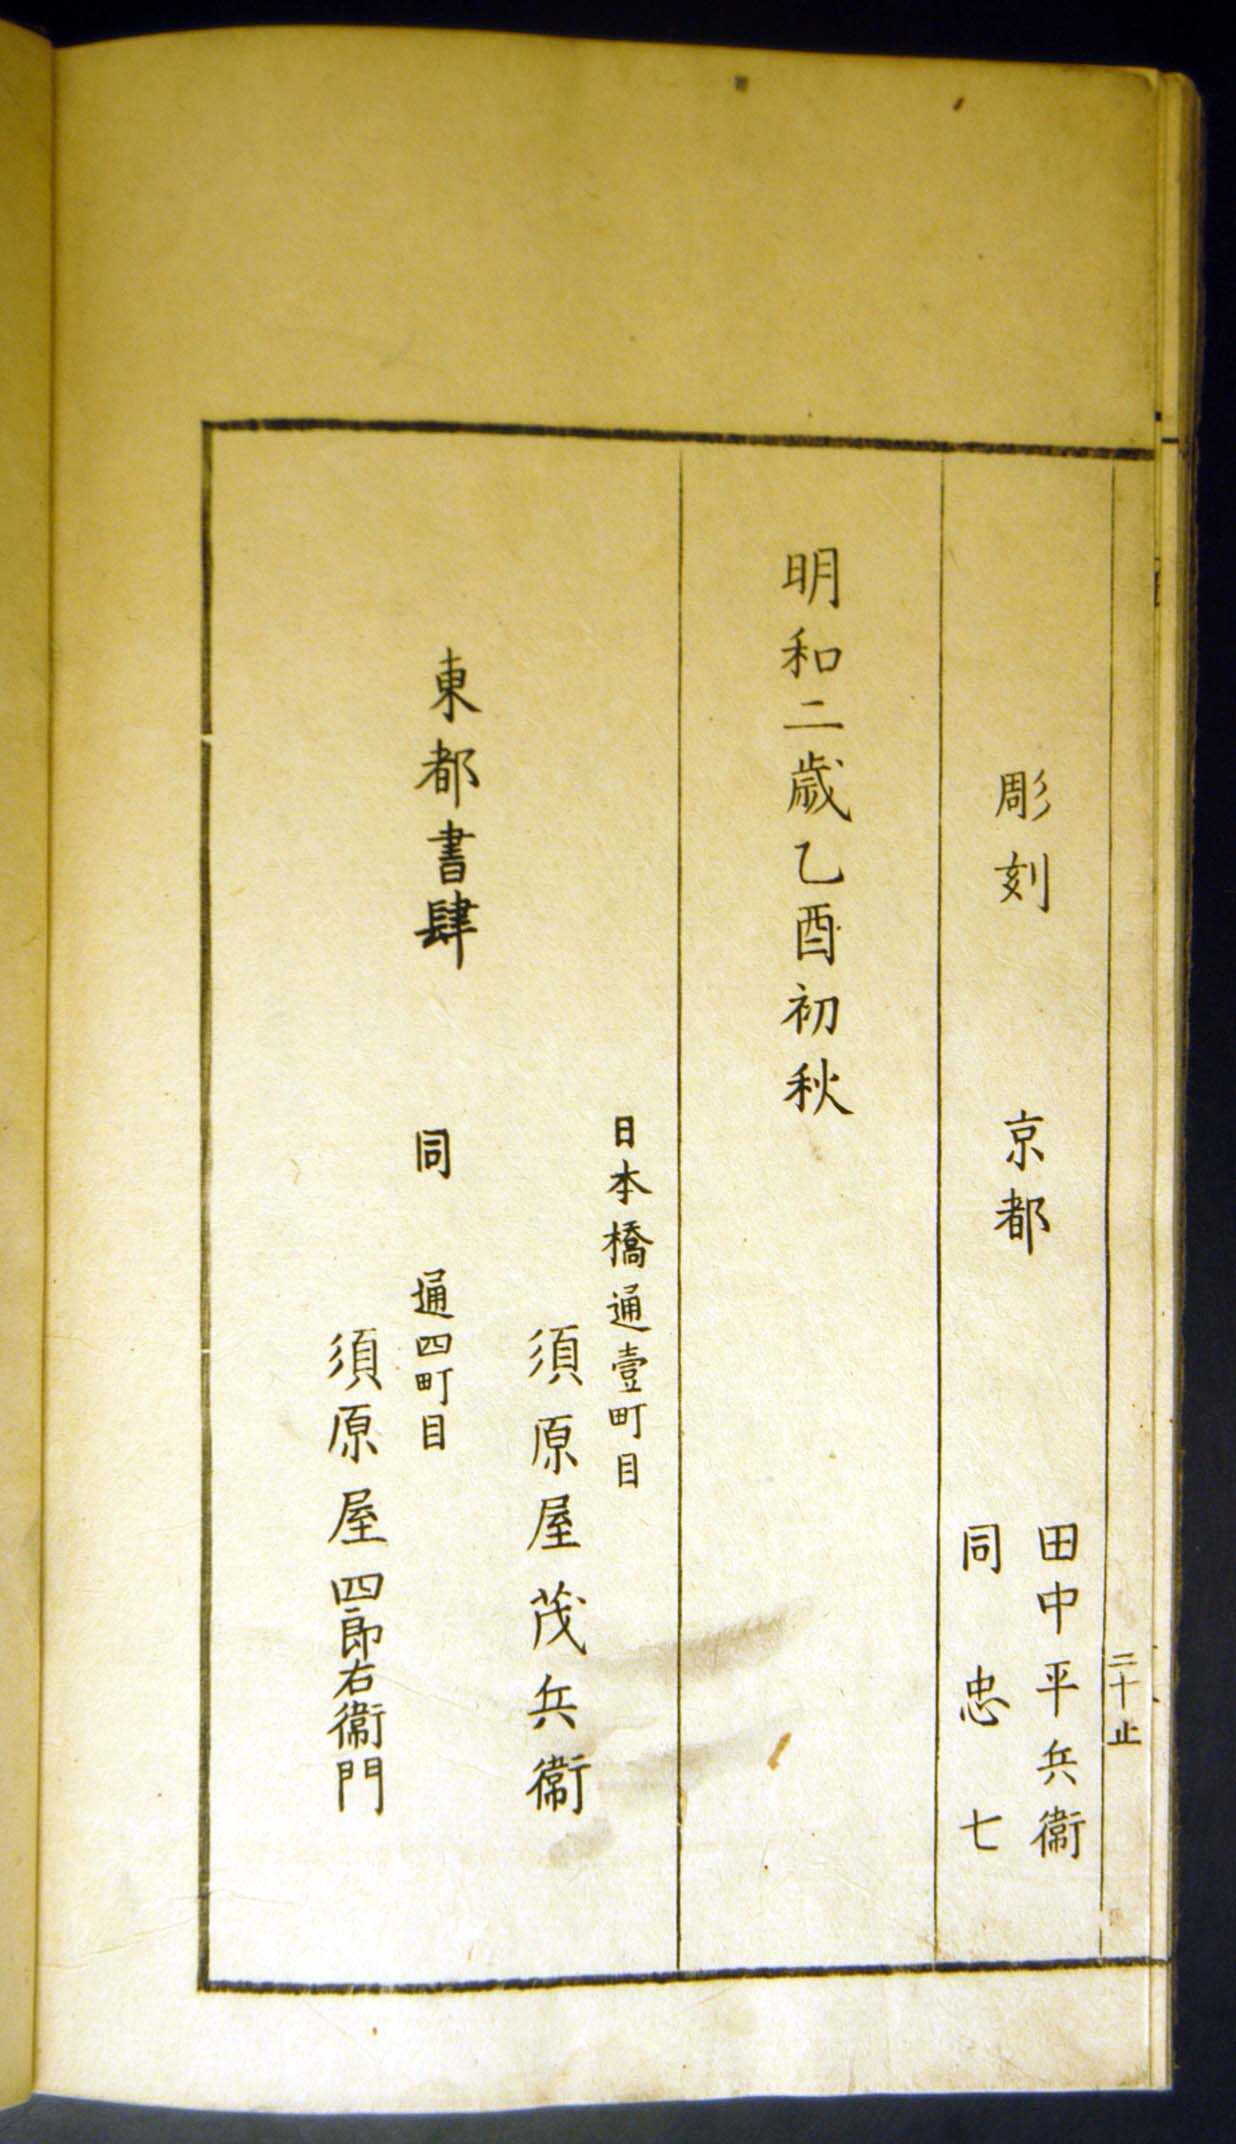 二十止
彫刻 京都 田中平兵衞
同 忠七
明和二歳乙酉初秋
東都書肆
日本橋通壹町目
須原屋茂兵衞
同 通四町目
須原屋四郎右衞門